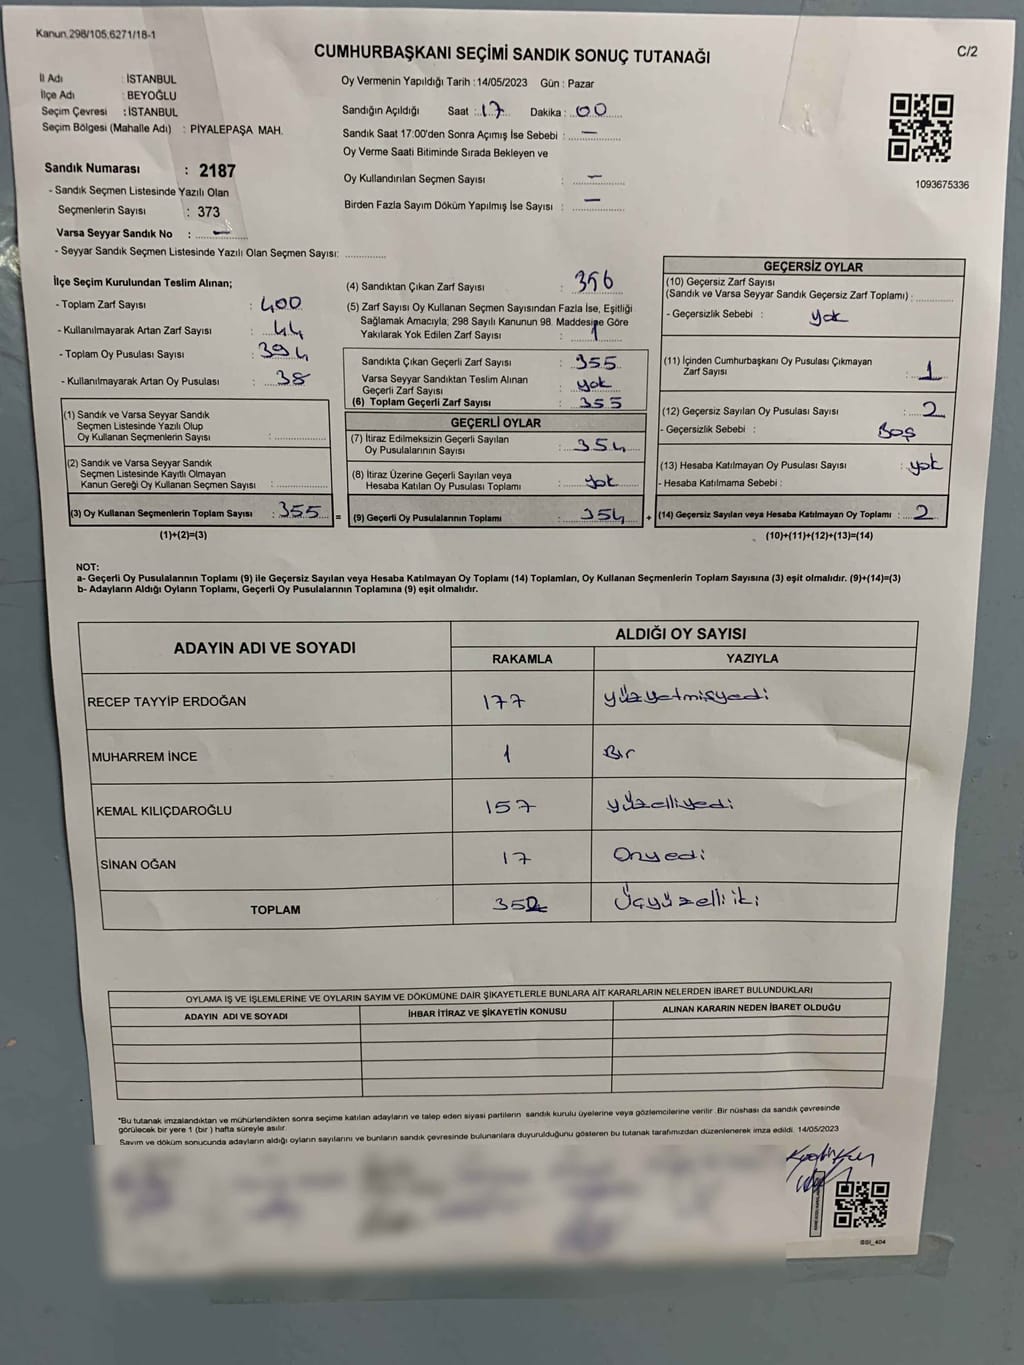 Kanun.298/105,6271/18-1
CUMHURBAŞKANI SEÇİMİ SANDIK SONUÇ TUTANAĞI
C/2
İl Adı : İSTANBUL
İlçe Adı : BEYOĞLU
Seçim Çevresi : İSTANBUL
Seçim Bölgesi (Mahalle Adı) : PİYALEPAŞA MAH.
Sandık Numarası : 2187
- Sandık Seçmen Listesinde Yazılı Olan
Seçmenlerin Sayısı : 373
Varsa Seyyar Sandık No : —
- Seyyar Sandık Seçmen Listesinde Yazılı Olan Seçmen Sayısı: ..............
Oy Vermenin Yapıldığı Tarih : 14/05/2023 Gün : Pazar
Sandığın Açıldığı Saat : 17 Dakika : 00
Sandık Saat 17:00'den Sonra Açımış İse Sebebi : —
Oy Verme Saati Bitiminde Sırada Bekleyen ve
Oy Kullandırılan Seçmen Sayısı : —
Birden Fazla Sayım Döküm Yapılmış İse Sayısı : —
1093675336
İlçe Seçim Kurulundan Teslim Alınan;
- Toplam Zarf Sayısı : 400
- Kullanılmayarak Artan Zarf Sayısı : 44
- Toplam Oy Pusulası Sayısı : 394
- Kullanılmayarak Artan Oy Pusulası : 38
(1) Sandık ve Varsa Seyyar Sandık
Seçmen Listesinde Yazılı Olup
Oy Kullanan Seçmenlerin Sayısı : ..............
(2) Sandık ve Varsa Seyyar Sandık
Seçmen Listesinde Kayıtlı Olmayan
Kanun Gereği Oy Kullanan Seçmen Sayısı : ..............
(3) Oy Kullanan Seçmenlerin Toplam Sayısı : 355 =
(1)+(2)=(3)
(4) Sandıktan Çıkan Zarf Sayısı : 356
(5) Zarf Sayısı Oy Kullanan Seçmen Sayısından Fazla İse, Eşitliği
Sağlamak Amacıyla, 298 Sayılı Kanunun 98. Maddesine Göre
Yakılarak Yok Edilen Zarf Sayısı : 1
Sandıkta Çıkan Geçerli Zarf Sayısı : 355
Varsa Seyyar Sandıktan Teslim Alınan
Geçerli Zarf Sayısı : yok
(6) Toplam Geçerli Zarf Sayısı : 355
GEÇERLİ OYLAR
(7) İtiraz Edilmeksizin Geçerli Sayılan
Oy Pusulalarının Sayısı : 354
(8) İtiraz Üzerine Geçerli Sayılan veya
Hesaba Katılan Oy Pusulası Toplamı : yok
(9) Geçerli Oy Pusulalarının Toplamı : 354 +
GEÇERSİZ OYLAR
(10) Geçersiz Zarf Sayısı
(Sandık ve Varsa Seyyar Sandık Geçersiz Zarf Toplamı) : ..............
- Geçersizlik Sebebi : yok
(11) İçinden Cumhurbaşkanı Oy Pusulası Çıkmayan
Zarf Sayısı : 1
(12) Geçersiz Sayılan Oy Pusulası Sayısı : 2
- Geçersizlik Sebebi : Boş
(13) Hesaba Katılmayan Oy Pusulası Sayısı : yok
- Hesaba Katılmama Sebebi :
(14) Geçersiz Sayılan veya Hesaba Katılmayan Oy Toplamı : 2
(10)+(11)+(12)+(13)=(14)
NOT:
a- Geçerli Oy Pusulalarının Toplamı (9) ile Geçersiz Sayılan veya Hesaba Katılmayan Oy Toplamı (14) Toplamları, Oy Kullanan Seçmenlerin Toplam Sayısına (3) eşit olmalıdır. (9)+(14)=(3)
b- Adayların Aldığı Oyların Toplamı, Geçerli Oy Pusulalarının Toplamına (9) eşit olmalıdır.
ADAYIN ADI VE SOYADI
ALDIĞI OY SAYISI
RAKAMLA YAZIYLA
RECEP TAYYİP ERDOĞAN 177 yüzyetmişyedi
MUHARREM İNCE 1 Bir
KEMAL KILIÇDAROĞLU 157 yüzelliyedi
SİNAN OĞAN 17 Onyedi
TOPLAM 352 Üçyüzelliiki
OYLAMA İŞ VE İŞLEMLERİNE VE OYLARIN SAYIM VE DÖKÜMÜNE DAİR ŞİKAYETLERLE BUNLARA AİT KARARLARIN NELERDEN İBARET BULUNDUKLARI
ADAYIN ADI VE SOYADI İHBAR İTİRAZ VE ŞİKAYETİN KONUSU ALINAN KARARIN NEDEN İBARET OLDUĞU
"Bu tutanak imzalandıktan ve mühürlendikten sonra seçime katılan adayların ve talep eden siyasi partilerin sandık kurulu üyelerine veya gözlemcilerine verilir .Bir nüshası da sandık çevresinde
görülecek bir yere 1 (bir ) hafta süreyle asılır.
Sayım ve döküm sonucunda adayların aldığı oyların sayılarını ve bunların sandık çevresinde bulunanlara duyurulduğunu gösteren bu tutanak tarafımızdan düzenlenerek imza edildi. 14/05/2023